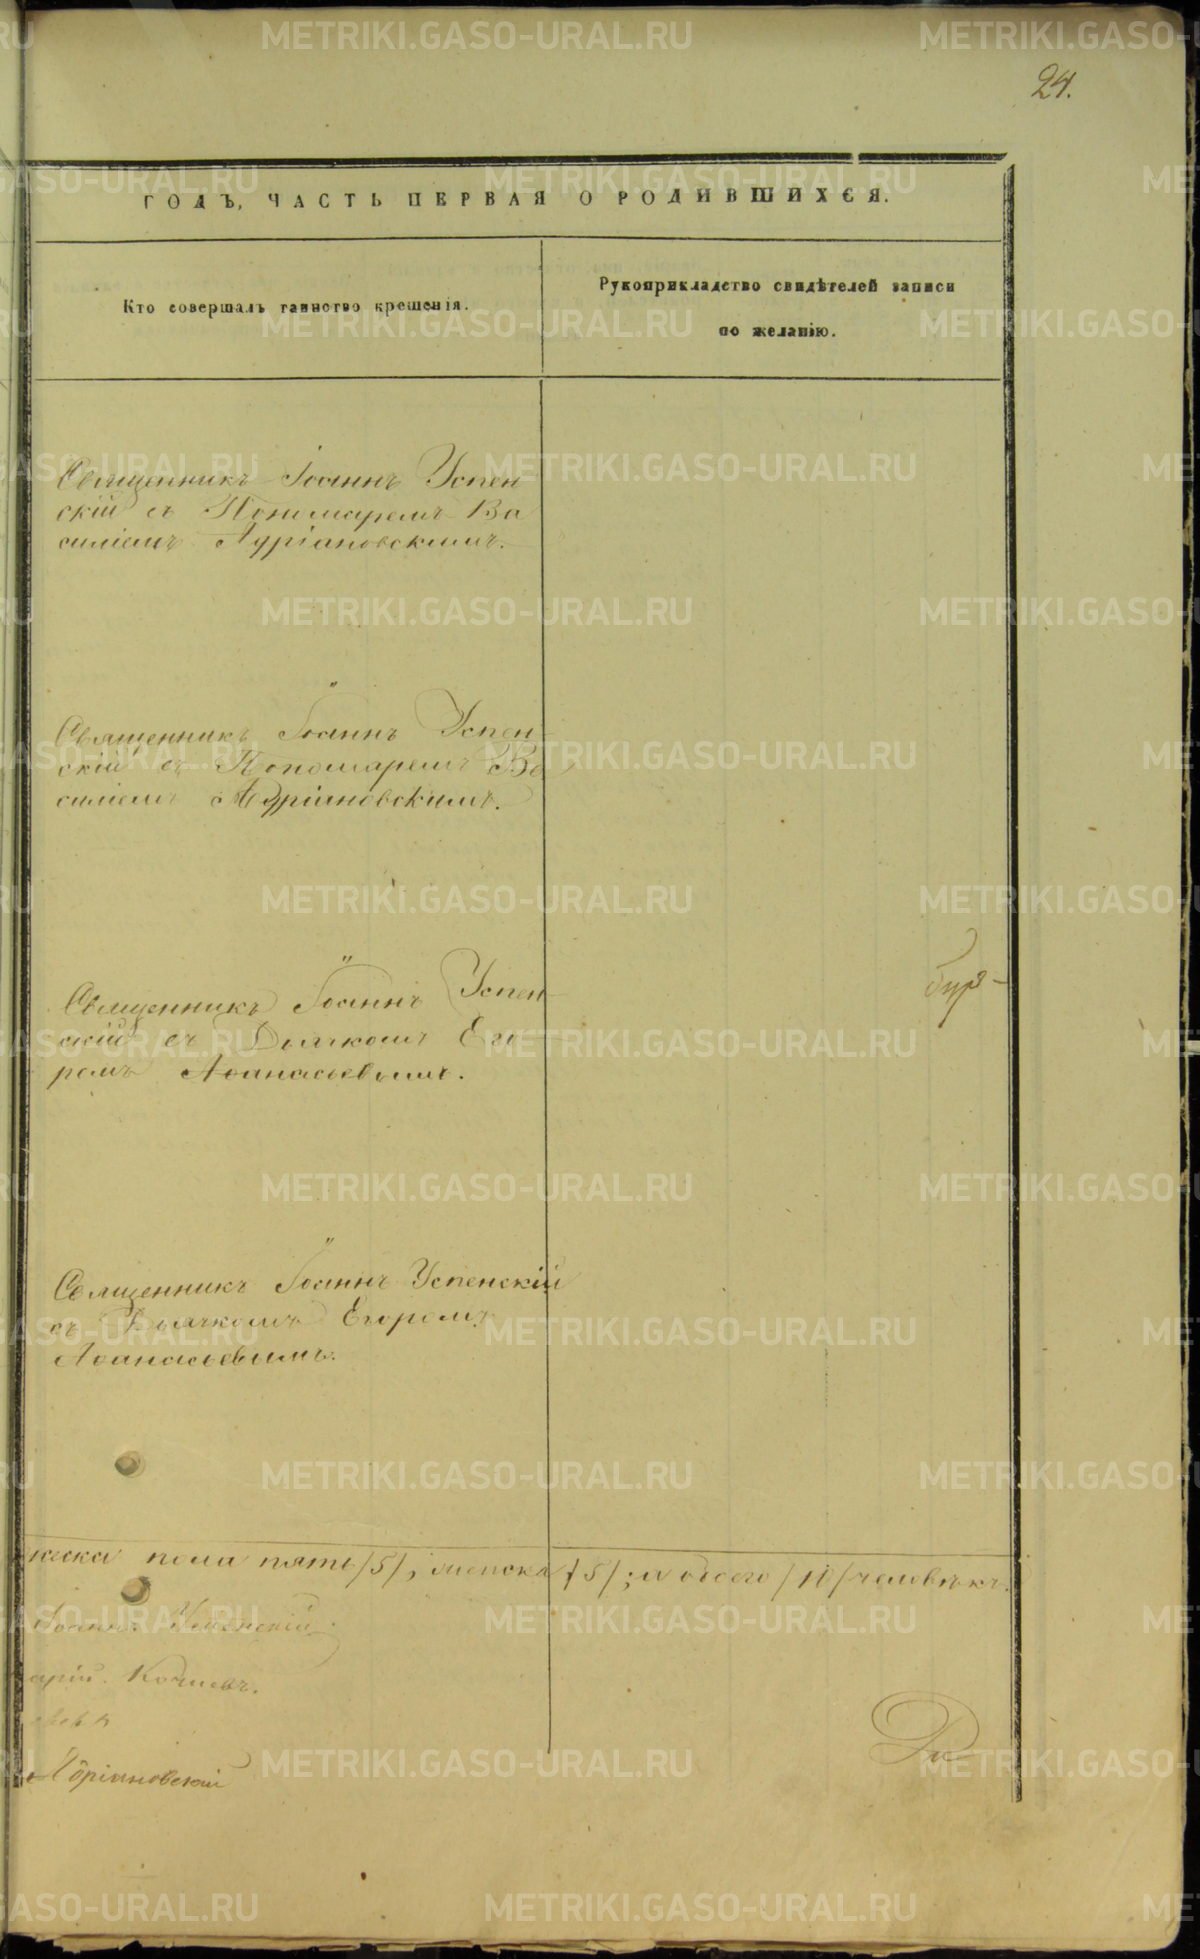 24.
ГОДЪ, ЧАСТЬ ПЕРВАЯ О РОДИВШИХСЯ.
Кто совершалъ таинство крещенія.
Рукоприкладство свидѣтелей записи
по желанію.
Священникъ Іоаннъ Успен
скій съ Пономаремъ Ва
силіемъ Адріановскимъ.
Священникъ Іоаннъ Успен
скій съ Пономаремъ Ва
силіемъ Адріановскимъ.
Священникъ Іоаннъ Успен
скій съ Дьячкомъ Его
ромъ Аѳанасьевымъ.
Священникъ Іоаннъ Успенскій
съ Дьячкомъ Егоромъ
Аѳанасьевымъ.
жеска пола пять /5/, женска /5/; а всего /10/ человѣкъ.
Іоаннъ Успенскій
Адріановскій
METRIKI.GASO-URAL.RU